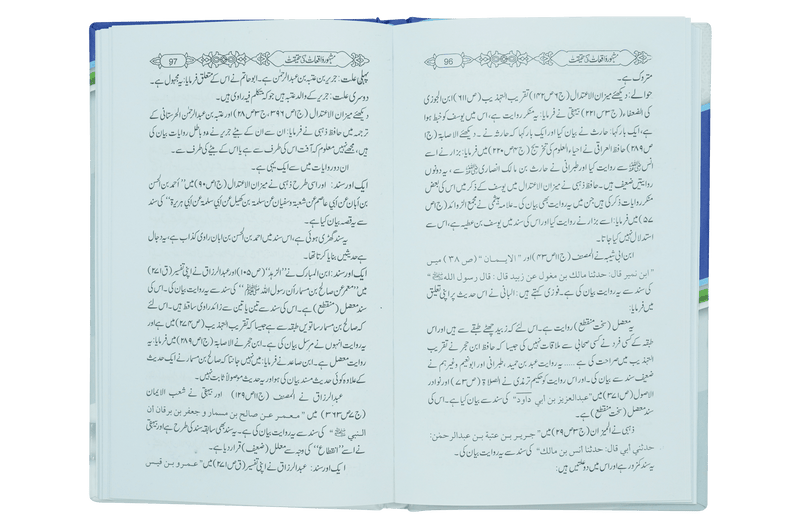 96 مشہور واقعات کی حقیقت
متروک ہے۔
حوالے: دیکھئے میزان الاعتدال (ج۶ص۱۴۲) تقریب التہذیب (ص۶۱۱) ابن الجوزی
کی الضعفاء (ج۳ص۲۲۱) بیہقی نے فرمایا: یہ منکر روایت ہے، اس میں یوسف کو خبط ہوا
ہے، ایک بار کہا: حارث نے بیان کیا اور ایک بار کہا کہ حارثہ نے۔ دیکھئے الاصابۃ (ج۱
ص۲۸۹) حافظ العراقی نے احیاء العلوم کی تخریج (ج۴ص۲۲۰) میں فرمایا: بزار نے اسے
انس ﷜ سے روایت کیا اور طبرانی نے حارث بن مالک انصاری ﷜ سے، یہ دونوں
روایتیں ضعیف ہیں۔ حافظ ذہبی نے میزان الاعتدال میں یوسف کے ذکر میں اس کی بعض
منکر روایات ذکر کی ہیں جن میں یہ روایت بھی بیان کی۔ علامہ ہیثمی نے مجمع الزوائد (ج۱ص
۵۷) میں فرمایا: اسے بزار نے روایت کیا اور اس کی سند میں یوسف بن عطیہ ہے، اس سے
استدلال نہیں کیا جاتا۔
ابن ابی شیبہ نے المصنف (ج۱۱ص۴۳) اور "الایمان" (ص ۳۸) میں
"ابن نمیر قال: حدثنا مالک بن مغول عن زبید قال: قال رسول اللہ ﷺ"
کی سند سے یہ روایت بیان کی ہے۔ فوزی کہتے ہیں: البانی نے اس حدیث پر اپنی تعلیق
میں فرمایا:
یہ معضل (سخت منقطع) روایت ہے۔ اس لئے کہ زبید چھٹے طبقے سے ہیں اور اس
طبقہ کے کسی فرد نے کسی صحابی سے ملاقات نہیں کی جیسا کہ حافظ ابن حجر نے تقریب
التہذیب میں صراحت کی ہے..... یہ روایت عبد بن حمید، طبرانی اور ابونعیم وغیرہم نے
ضعیف سند سے بیان کی۔ اور اس روایت کو حکیم ترمذی نے الصلاۃ (ص۷۳) اور نوادر
الاصول (ص۳۷۱) میں "عبدالعزیز بن ابی داود" کی سند سے بیان کیا ہے۔ اس کی
سند معضل (سخت منقطع) ہے۔
ذہبی نے المیزان (ج۳ص۲۹) میں "جریر بن عتبة بن عبدالرحمٰن:
حدثني أبي قال: حدثنا أنس بن مالك" کی سند سے یہ روایت بیان کی۔
یہ سند کمزور ہے اور اس میں دو علتیں ہیں:
97 مشہور واقعات کی حقیقت
پہلی علت: جریر بن عتبہ بن عبدالرحمٰن ہے۔ ابوحاتم نے اس کے متعلق فرمایا: یہ مجہول ہے۔
دوسری علت: جریر کے والد عتبہ ہیں جو کہ متکلم فیہ راوی ہیں۔
دیکھئے میزان الاعتدال (ج۱ص۳۹۶، ج۳ص۲۸) اور عتبہ بن عبدالرحمٰن الحرستانی کے
ترجمہ میں حافظ ذہبی نے فرمایا: ان سے ان کے بیٹے جریر نے دو باطل روایات بیان کی
ہیں، مجھے نہیں معلوم کہ آفت اس کی طرف سے ہے یا اس کے بیٹے کی طرف سے۔
ان دو روایات میں سے ایک یہی ہے۔
ایک اور سند: اور اسی طرح ذہبی نے میزان الاعتدال (ج۱ص۹۰) میں "أحمد بن الحسن
بن أبان عن أبي عاصم عن شعبة وسفيان عن سلمة بن كهيل عن أبي سلمة عن أبي هريرة" کی سند
سے یہ قصہ بیان کیا ہے۔
یہ سند گھڑی ہوئی ہے، اس سند میں احمد بن الحسن بن ابان راوی کذاب ہے، یہ دجال
ہے حدیثیں بنایا کرتا تھا۔
ایک اور سند: ابن المبارک نے "الزہد" (ص۱۰۵) اور عبدالرزاق نے اپنی تفسیر (ق۲۷۱)
میں "معمر عن صالح بن مسمار أن رسول الله ﷺ" کی سند سے یہ روایت بیان کی۔ اس کی
سند معضل (منقطع) ہے۔ اس کی سند سے تین یا تین سے زائد راوی ساقط ہیں۔ اس لئے
کہ صالح بن مسمار ساتویں طبقہ سے ہے جیسا کہ تقریب التہذیب (ص۲۷۴) میں ہے اور یہ
روایت انہوں نے مرسل بیان کی ہے۔ ابن حجر نے الاصابۃ (ج۱ص۲۸۹) میں فرمایا: یہ
روایت معضل ہے۔ ابن صاعد نے فرمایا: میں نہیں جانتا کہ صالح بن مسمار نے ایک حدیث
کے علاوہ کوئی حدیث مسند بیان کی ہو اور یہ حدیث موصولاً ثابت نہیں۔
عبدالرزاق نے المصنف (ج۱۱ص۱۲۹) اور بیہقی نے شعب الایمان
(ج۷ص۳۶۳) میں "معمر عن صالح بن مسمار و جعفر بن برقان أن
النبي ﷺ" کی سند سے یہ روایت بیان کی ہے۔ یہ سند بھی سابقہ سند کی طرح ہے اور بیہقی
نے اسے "انقطاع" کی وجہ سے معلل (ضعیف) قرار دیا ہے۔
ایک اور سند: عبدالرزاق نے اپنی تفسیر (ق۲۷۱) میں "عمرو بن قیس